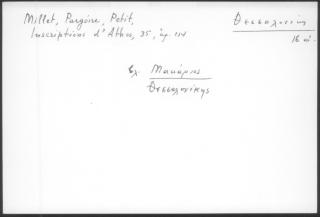 Millet, Pargoire, Petit,
Inscriptions d'Athos, 35, ἀρ. 114
Θεσσαλονίκη
16 αἰ.
Μακάριος
Θεσσαλονίκης